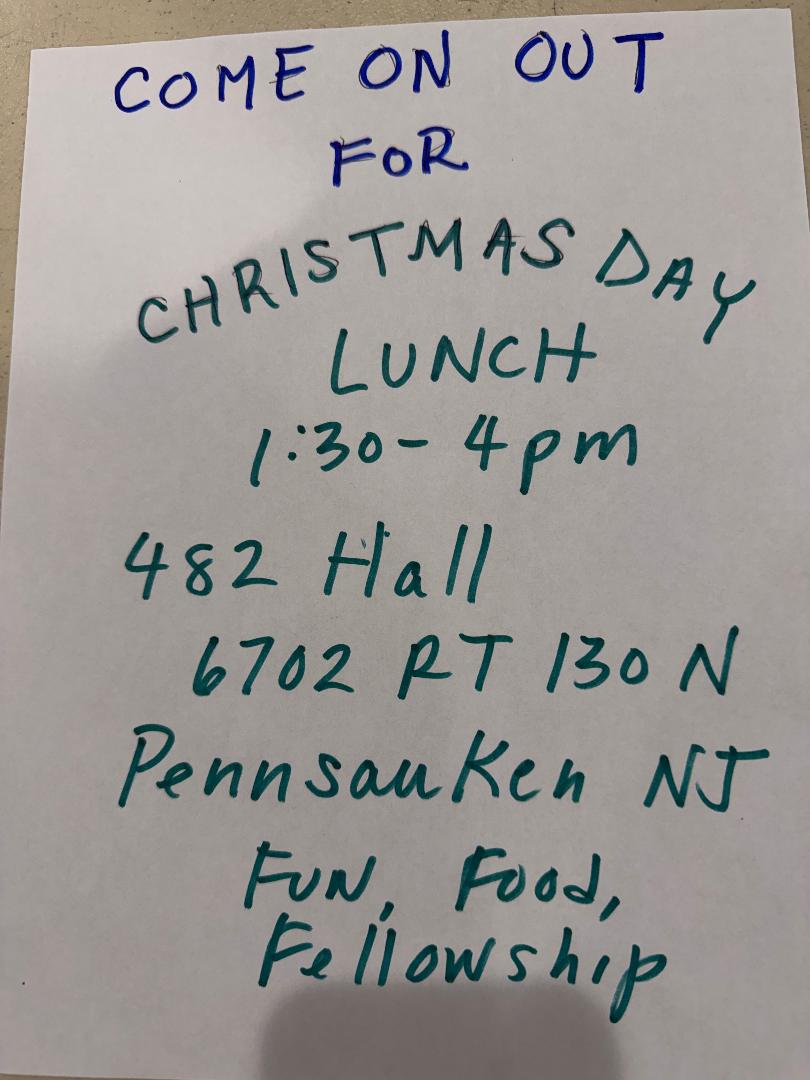 COME ON OUT
FOR
CHRISTMAS DAY
LUNCH
1:30 - 4pm
482 Hall
6702 RT 130 N
Pennsauken NJ
FUN, Food,
Fellowship